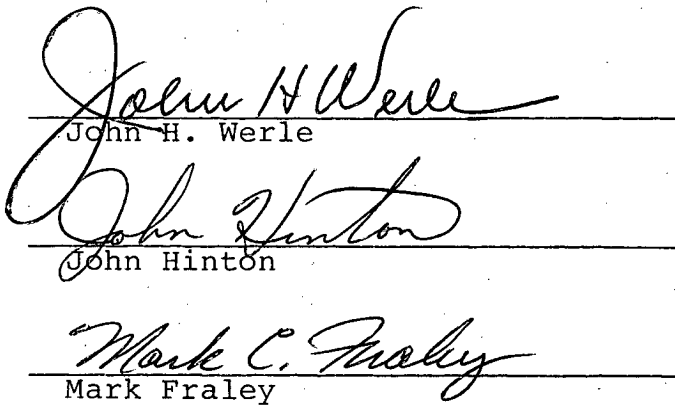 John H Werle
John H. Werle
John Hinton
John Hinton
Mark C. Fraley
Mark Fraley